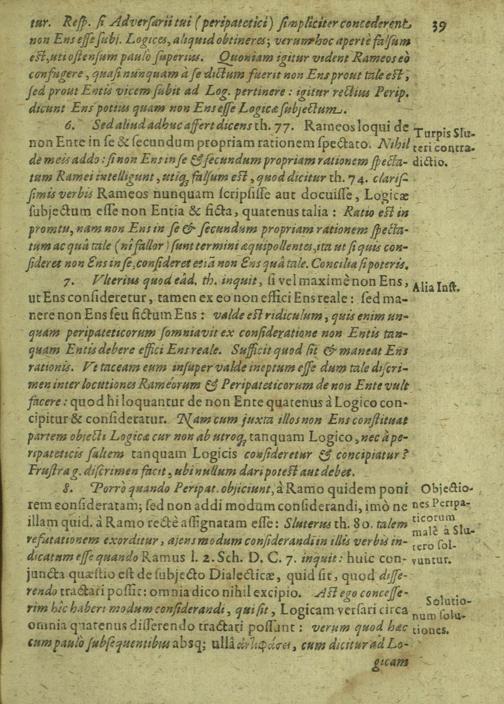 39
tur. Resp. si Adversarii tui (peripatetici) simpliciter concederent
non Ens esse subi. Logices, aliquid obtineres; verum hoc apertè falsum
est, uti ostensum paulò superius. Quoniam igitur vident Rameos eò
confugere, quasi nunquam à se dictum fuerit non Ens prout tale est,
sed prout Entis vicem subit ad Log. pertinere: igitur rectius Perip.
dicunt Ens potius quam non Ens esse Logicæ subjectum.
6. Sed aliud adhuc affert dicens th. 77. Rameos loqui de
non Ente in se & secundum propriam rationem spectato. Nihil
de meis addo: si non Ens in se & secundum propriam rationem specta-
tum Ramei intelligunt, utiq; falsum est, quod dicitur th. 74. claris-
simis verbis Rameos nunquam scripsisse aut docuisse, Logicæ
subjectum esse non Entia & ficta, quatenus talia: Ratio est in
promtu, nam non Ens in se & secundum propriam rationem specta-
tum ac quà tale (ni fallor) sunt termini æquipollentes, ita ut si quis con-
sideret non Ens in se, consideret etiã non Ens quà tale. Concilia si poteris.
Turpis Slu-
teri contra-
dictio.
7. Vlterius quod eâd. th. inquit, si vel maximè non Ens,
ut Ens consideretur, tamen ex eo non effici Ens reale: sed ma-
nere non Ens seu fictum Ens: valde est ridiculum, quis enim un-
quam peripateticorum somniavit ex consideratione non Entis tan-
quam Entis debere effici Ens reale. Sufficit quod sit & maneat Ens
rationis. Vt taceam eum insuper valde ineptum esse dum tale discri-
men inter locutiones Rameorum & Peripateticorum de non Ente vult
facere: quod hi loquantur de non Ente quatenus à Logico con-
cipitur & consideratur. Nam cum juxta illos non Ens constituat
partem objecti Logicæ cur non ab utroq; tanquam Logico, nec à pe-
ripateticis saltem tanquam Logicis consideretur & concipiatur?
Frustra g. discrimen facit, ubi nullum dari potest aut debet.
Alia Inst.
8. Porrò quando Peripat. objiciunt, à Ramo quidem poni
rem consideratam; sed non addi modum considerandi, imò ne
illam quid. à Ramo rectè assignatam esse: Sluterus th. 80. talem
refutationem exorditur, ajens modum considerandi in illis verbis in-
dicatum esse quando Ramus l. 2. Sch. D. C. 7. inquit: huic con-
juncta quæstio est de subjecto Dialecticæ, quid sit, quod diffe-
rendo tractari possit: omnia dico nihil excipio. Ast ego concesse-
rim hic haberi modum considerandi, qui sit, Logicam versari circa
omnia quatenus differendo tractari possunt: verum quod hæc
cum paulò subsequentibus absq; ullâ ἀντιφάσει, cum dicitur ad Lo-
gicam
Objectio-
nes Peripa-
ticorum
malè à Slu-
tero sol-
vuntur.
Solutio-
num solu-
tiones.